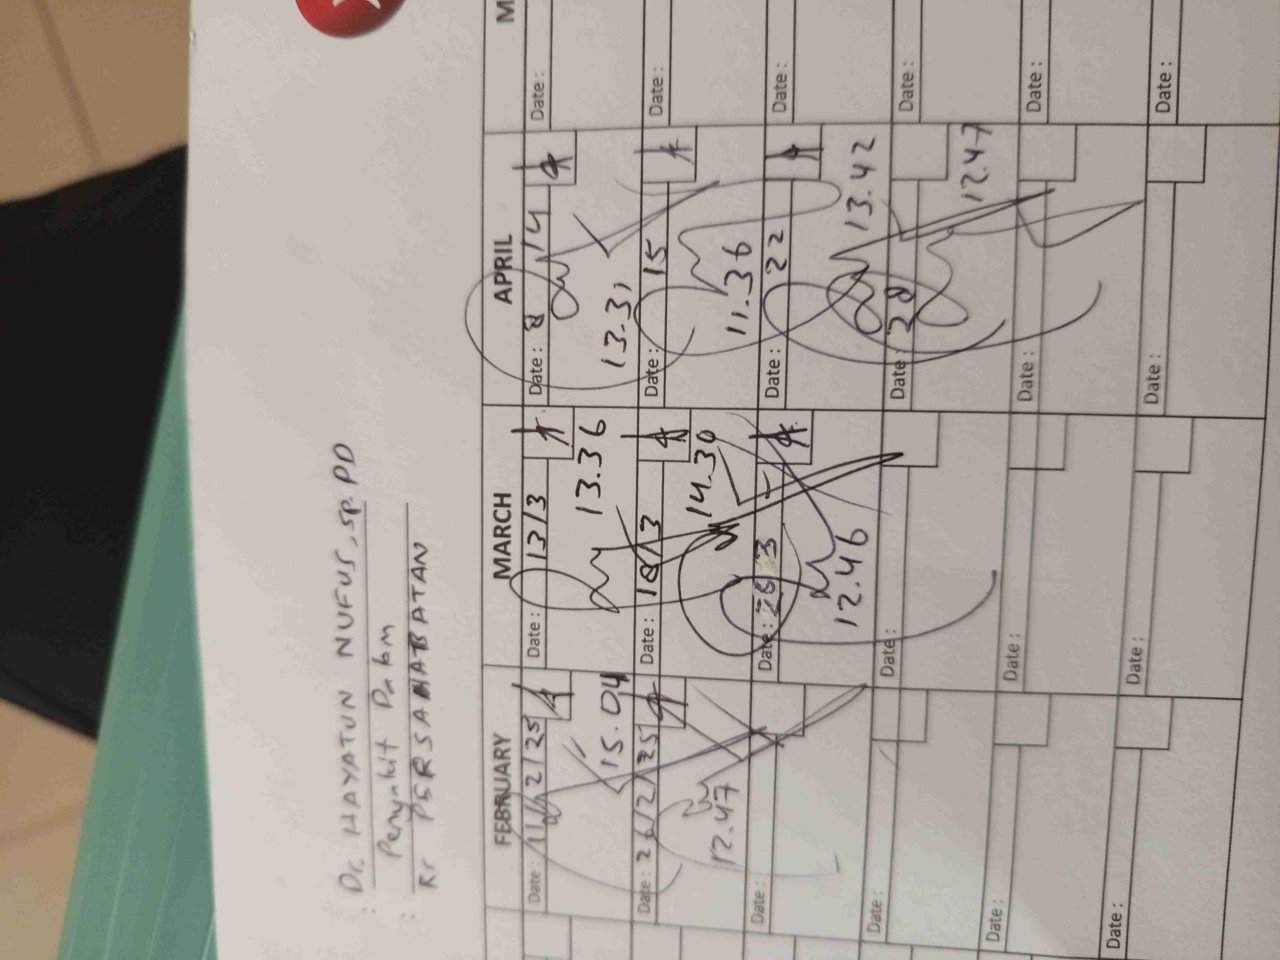 : Dr. HAYATUN NUFUS, sp.PD
Penyakit Dalam
: RS PERSAHABATAN
FEBRUARY MARCH APRIL M
Date: 11/2/25 Date: 13/3 Date: 8/4 Date:
15.04 13.36 13.31
Date: 26/2/25 Date: 18/3 Date: 15 Date:
12.47 14.30 11.36
Date: Date: Date: 22 Date:
12.46 13.42
Date: Date: Date: 28 Date:
12.47
Date: Date: Date: Date:
Date: Date: Date: Date: